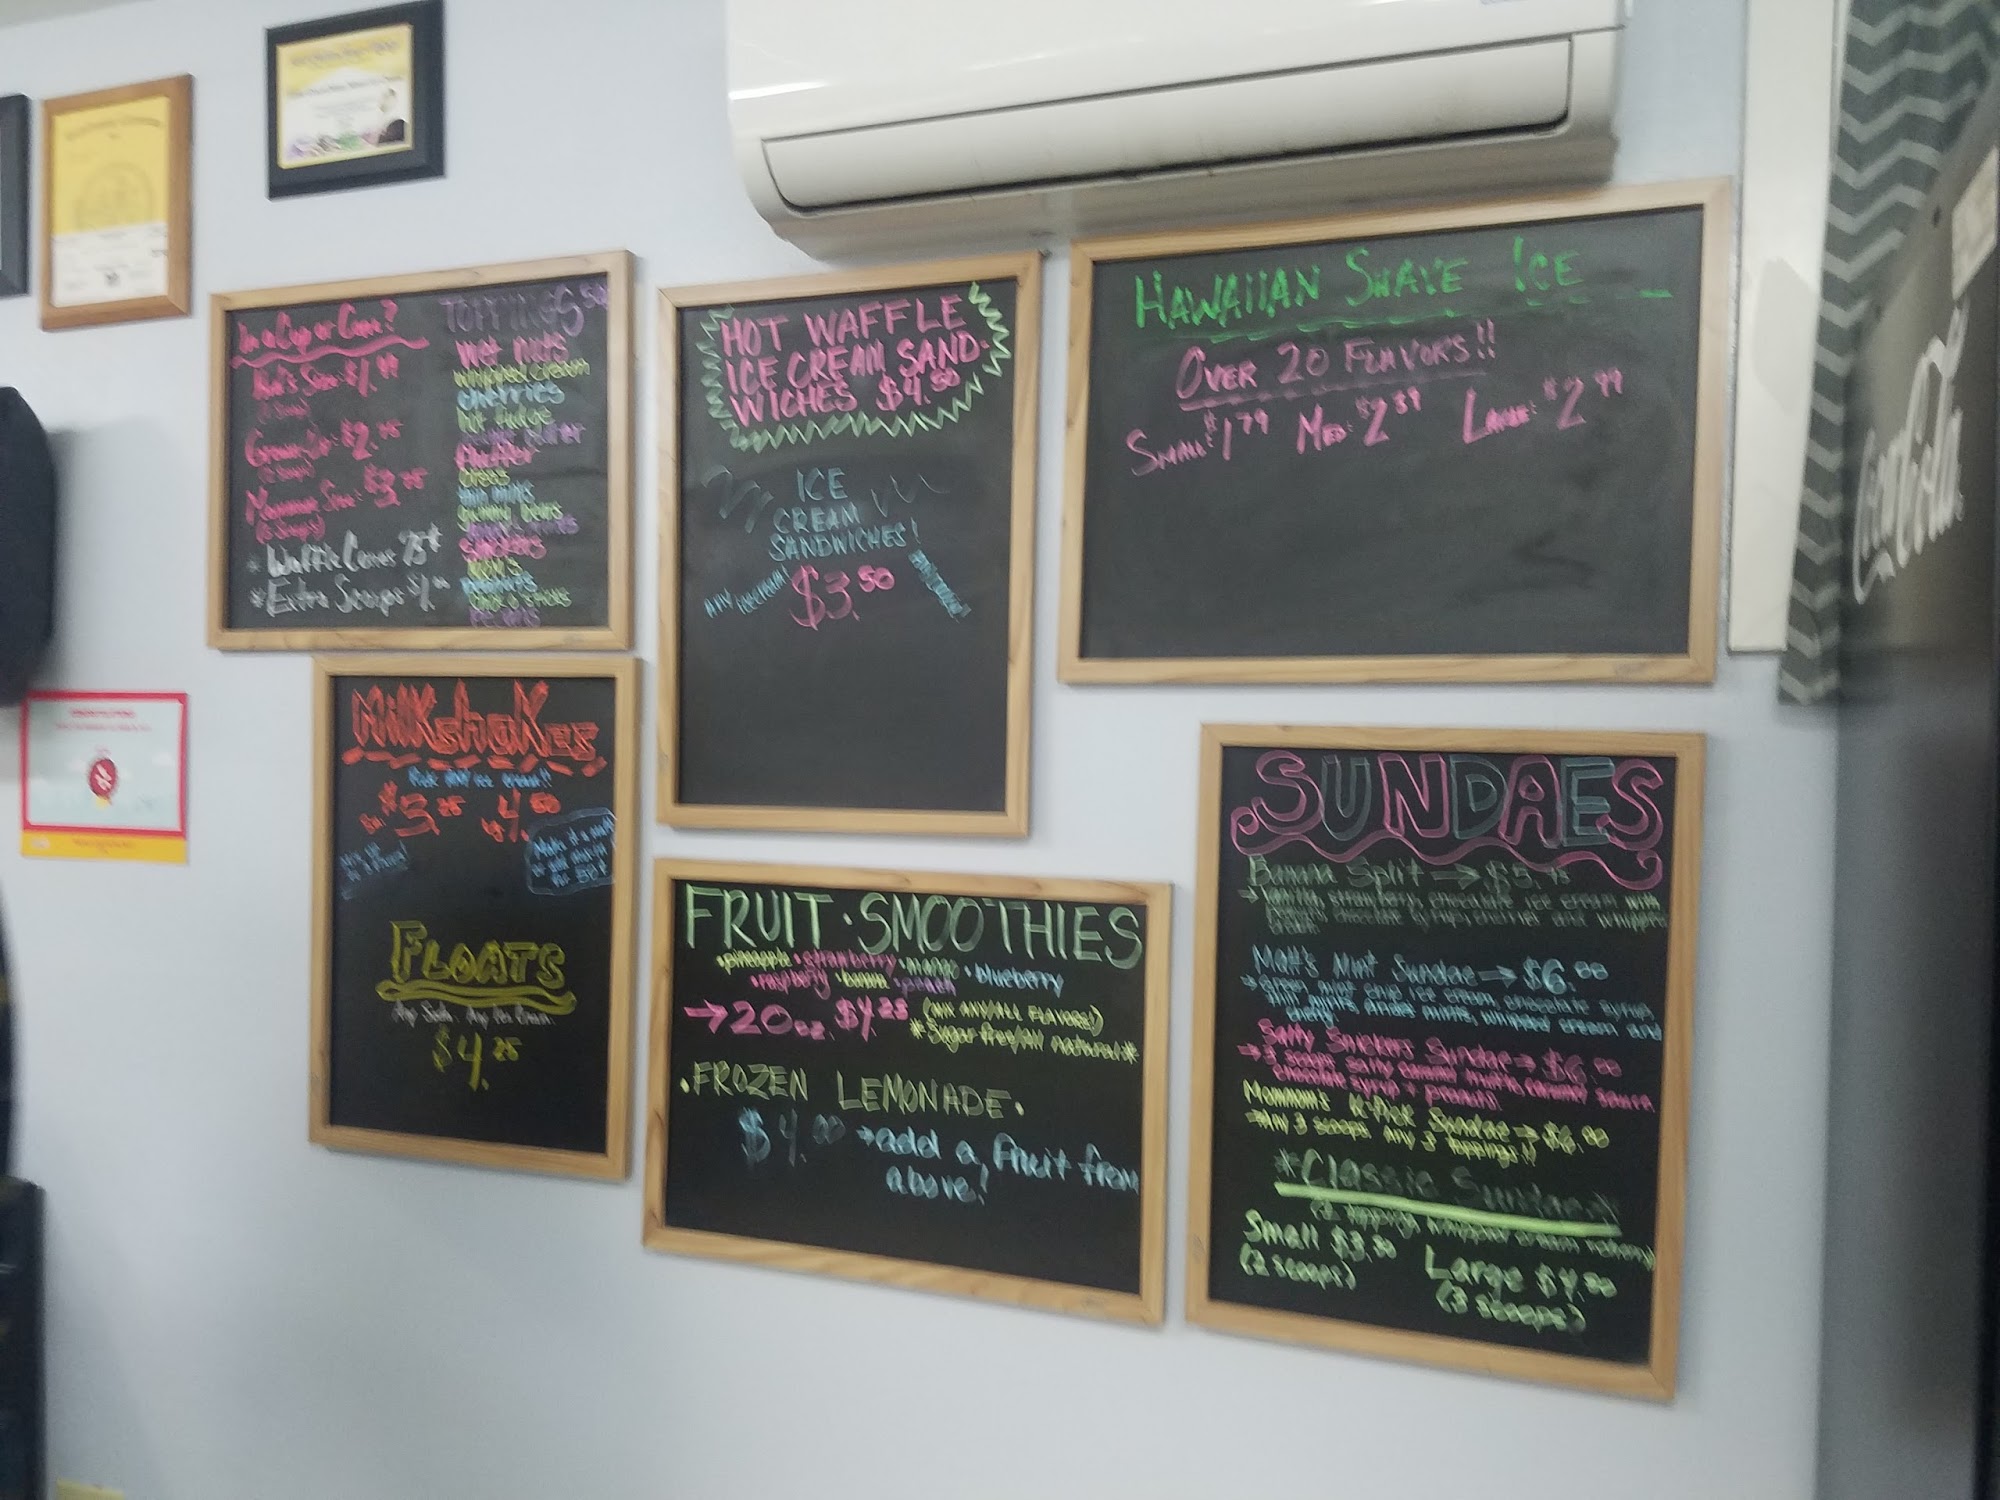 In a Cup or Cone?
$1.99
$2.75
$3.25
* Waffle Cones 75¢
* Extra Scoops $1.00
TOPPINGS .50
Wet nuts
whipped cream
cherries
hot fudge
Fluffer
Oreos
gummy bears
Snickers
PECANS
HOT WAFFLE
ICE CREAM SAND-
WICHES $4.50
ICE
CREAM
SANDWICHES!
ANY ICECREAM
$3.50
HAWAIIAN SHAVE ICE
OVER 20 FLAVORS!!
SMALL: $1.79 MED: $2.39 LARGE: $2.99
MilKshaKes
Pick ANY ice cream!!
Sm. $3.25 Lg 4.50
FLOATS
Any Soda. Any Ice Cream.
$4.25
FRUIT·SMOOTHIES
•pineapple •strawberry •mango •blueberry
•raspberry •banana •peach
→20oz. $4.25 (MIX ANY/ALL FLAVORS!)
*Sugar free/All natural*
•FROZEN LEMONADE•
$4.00 →add a fruit from
above!
SUNDAES
Banana Split → $5.95
→ Vanilla, strawberry, chocolate ice cream with
chocolate syrup, cherries and whipped
cream
Matt's Mint Sundae → $6.00
→ Green mint chip ice cream, chocolate syrup,
Andes mints, whipped cream and
cherry
Salty Snickers Sundae → $6.00
→ 3 scoops salty caramel truffle, caramel sauce
chocolate syrup + peanuts
Mommom's U-Pick Sundae → $6.00
→ Any 3 scoops Any 3 toppings!!
*Classic Sundae*
Small $3.50
(2 scoops)
Large $4.00
(3 scoops)
Coca-Cola